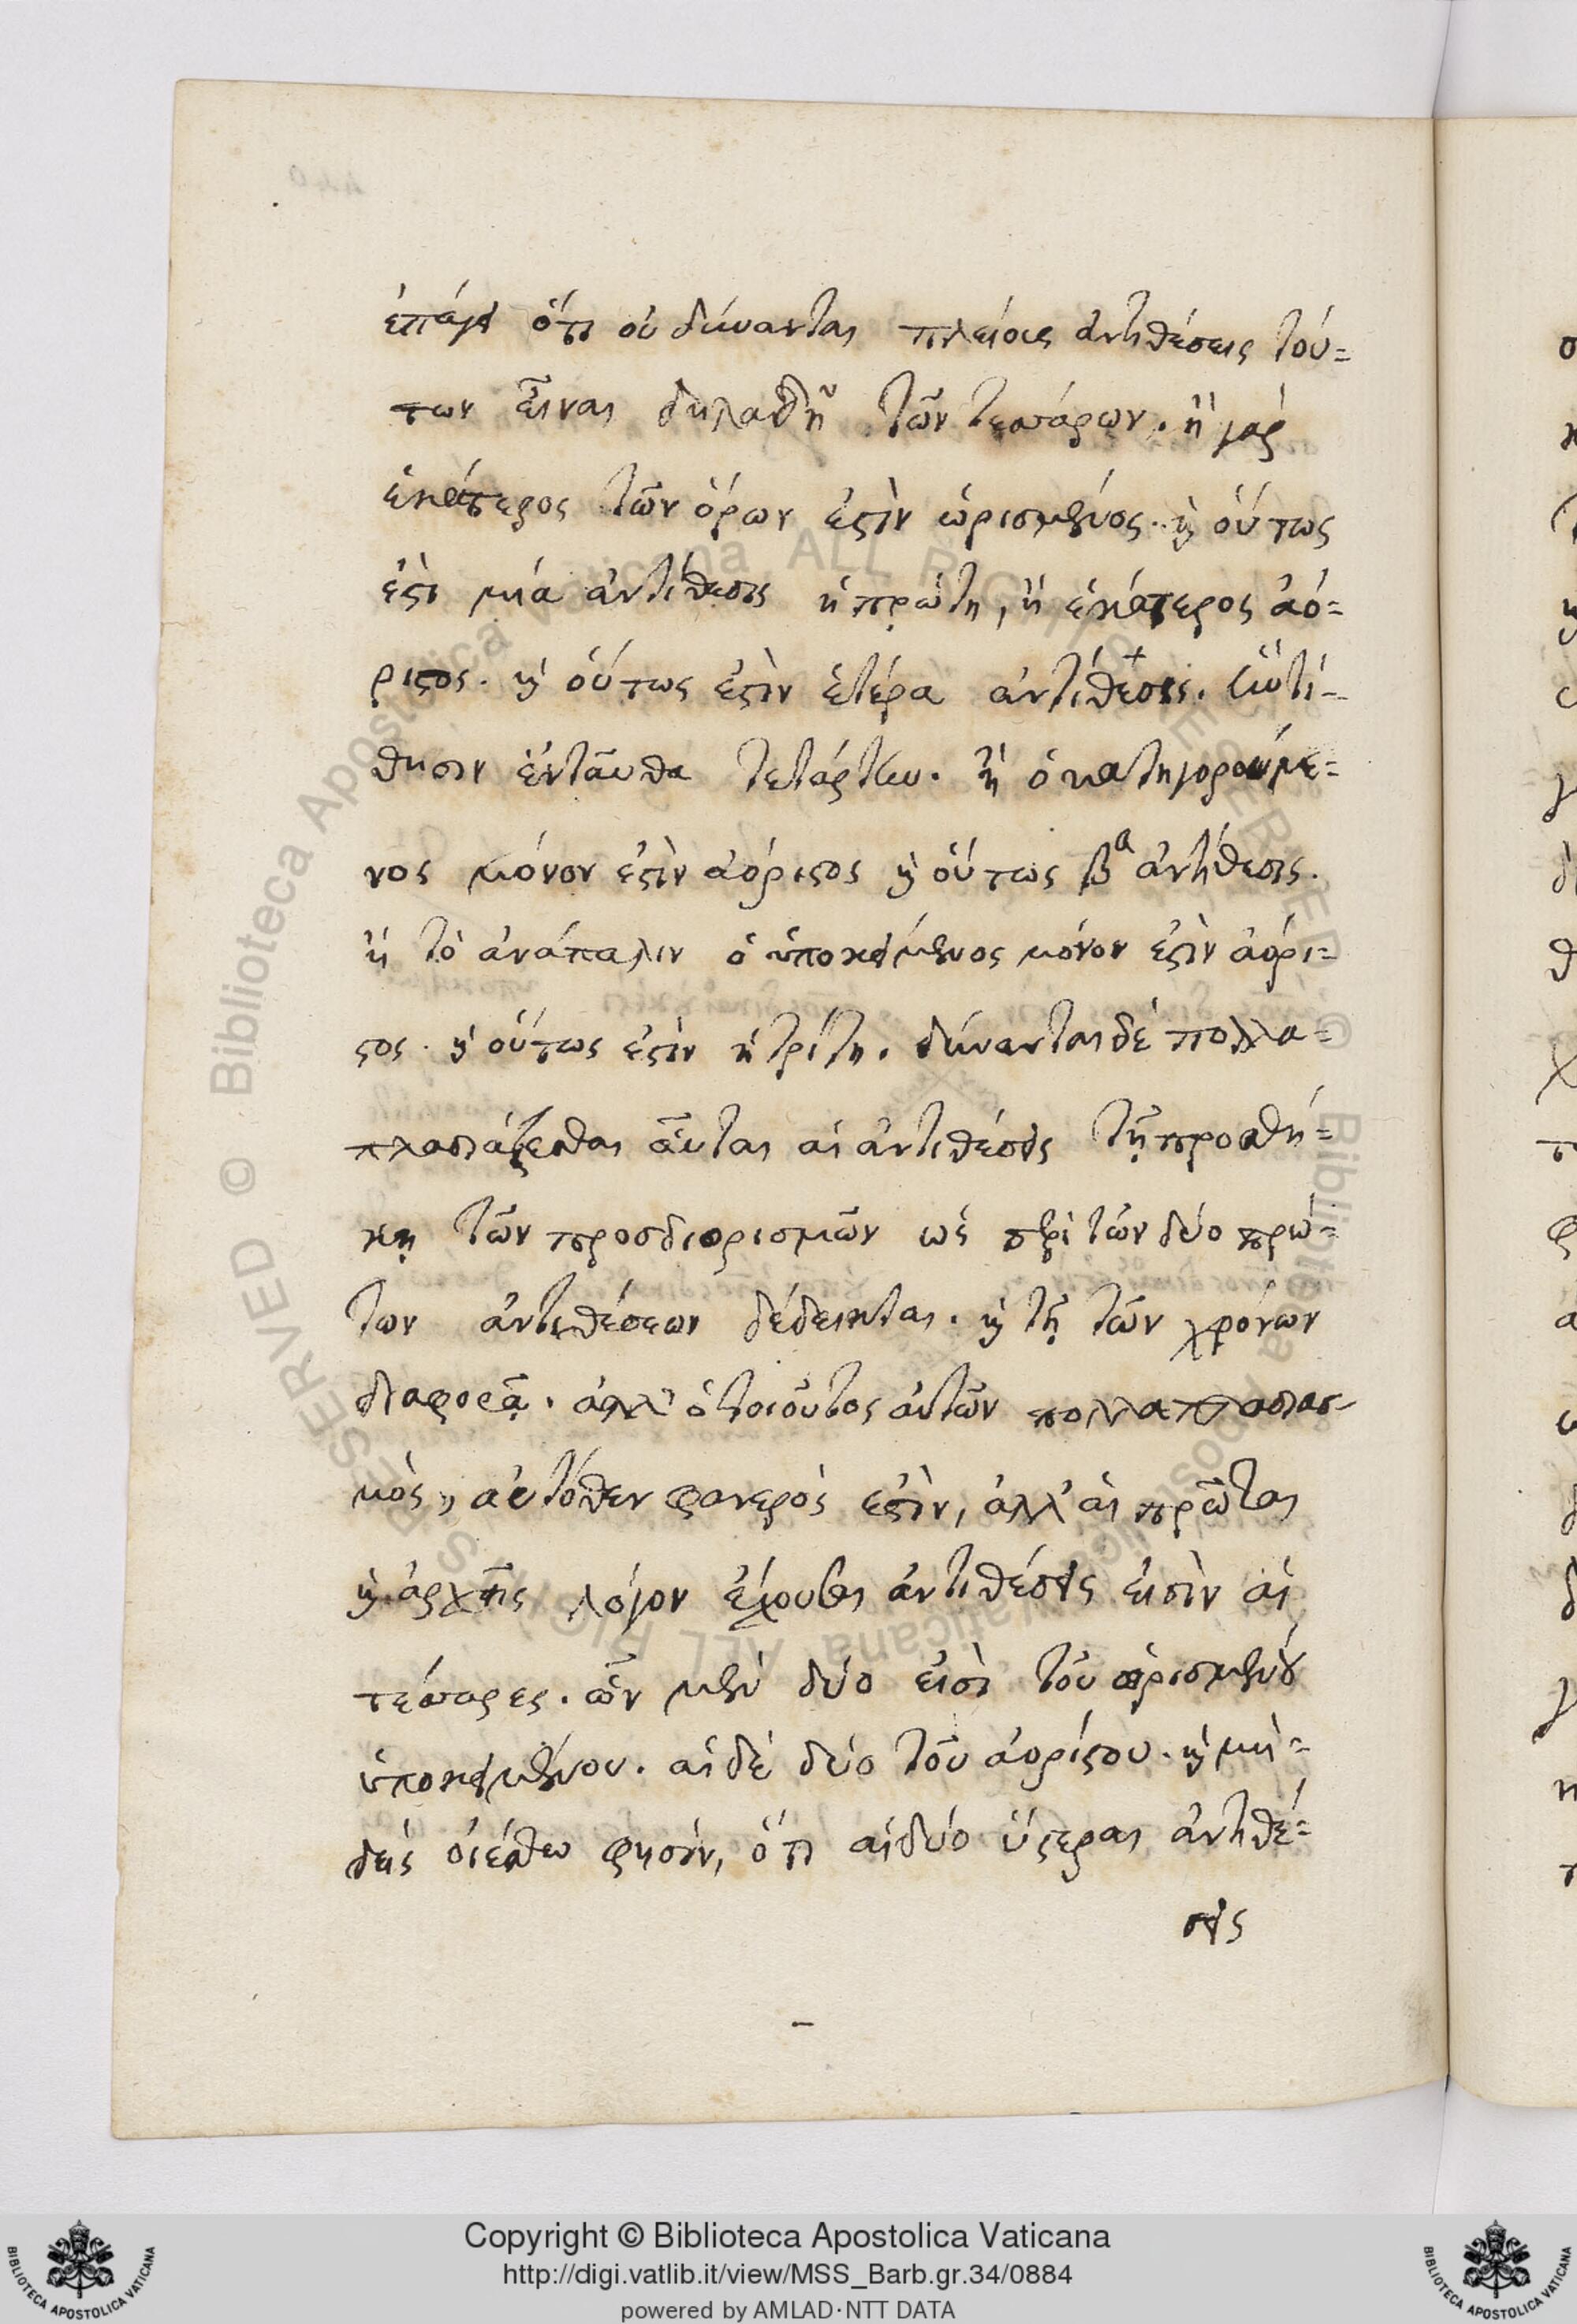 ἐπάγει ὅτι οὐ δύνανται πλείους ἀντιθέσεις τού=
των εἶναι δηλαδὴ τῶν τεσσάρων. ἢ γὰρ
ἑκάτερος τῶν ὅρων ἐστὶν ὡρισμένος. καὶ οὕτως
ἐστὶ μία ἀντίθεσις ἡ πρώτη, ἢ ἑκάτερος ἀό=
ριστος. καὶ οὕτως ἐστὶν ἑτέρα ἀντίθεσις. ἣν τί=
θησιν ἐνταῦθα τετάρτην. ἢ ὁ κατηγορούμε=
νος μόνον ἐστὶν ἀόριστος καὶ οὕτως βα ἀντίθεσις.
ἢ τὸ ἀνάπαλιν ὁ ὑποκείμενος μόνον ἐστὶν ἀόρι=
στος. καὶ οὕτως ἐστὶν ἡ τρίτη. δύνανται δὲ πολλα=
πλασιάζεσθαι αὗται αἱ ἀντιθέσεις τῇ προσθή=
κῃ τῶν προσδιορισμῶν ὡς περὶ τῶν δύο πρώ=
των ἀντιθέσεων δέδεικται. καὶ τῇ τῶν χρόνων
διαφορᾷ. ἀλλ' ὁ τοιοῦτος αὐτῶν πολλαπλασιασ-
μὸς, αὐτόθεν φανερὸς ἐστὶν, ἀλλ' αἱ πρῶται
καὶ ἀρχῆς λόγον ἔχουσαι ἀντιθέσεις εἰσὶν αἱ
τέσσαρες. ὧν μὲν δύο εἰσὶ τοῦ ὡρισμένου
ὑποκειμένου. αἱ δὲ δύο τοῦ ἀορίστου. καὶ μη=
δεὶς οἰέσθω φησὶν, ὅτι αἱ δύο ὕστεραι ἀντιθέ=
σεις
Copyright © Biblioteca Apostolica Vaticana
http://digi.vatlib.it/view/MSS_Barb.gr.34/0884
powered by AMLAD·NTT DATA